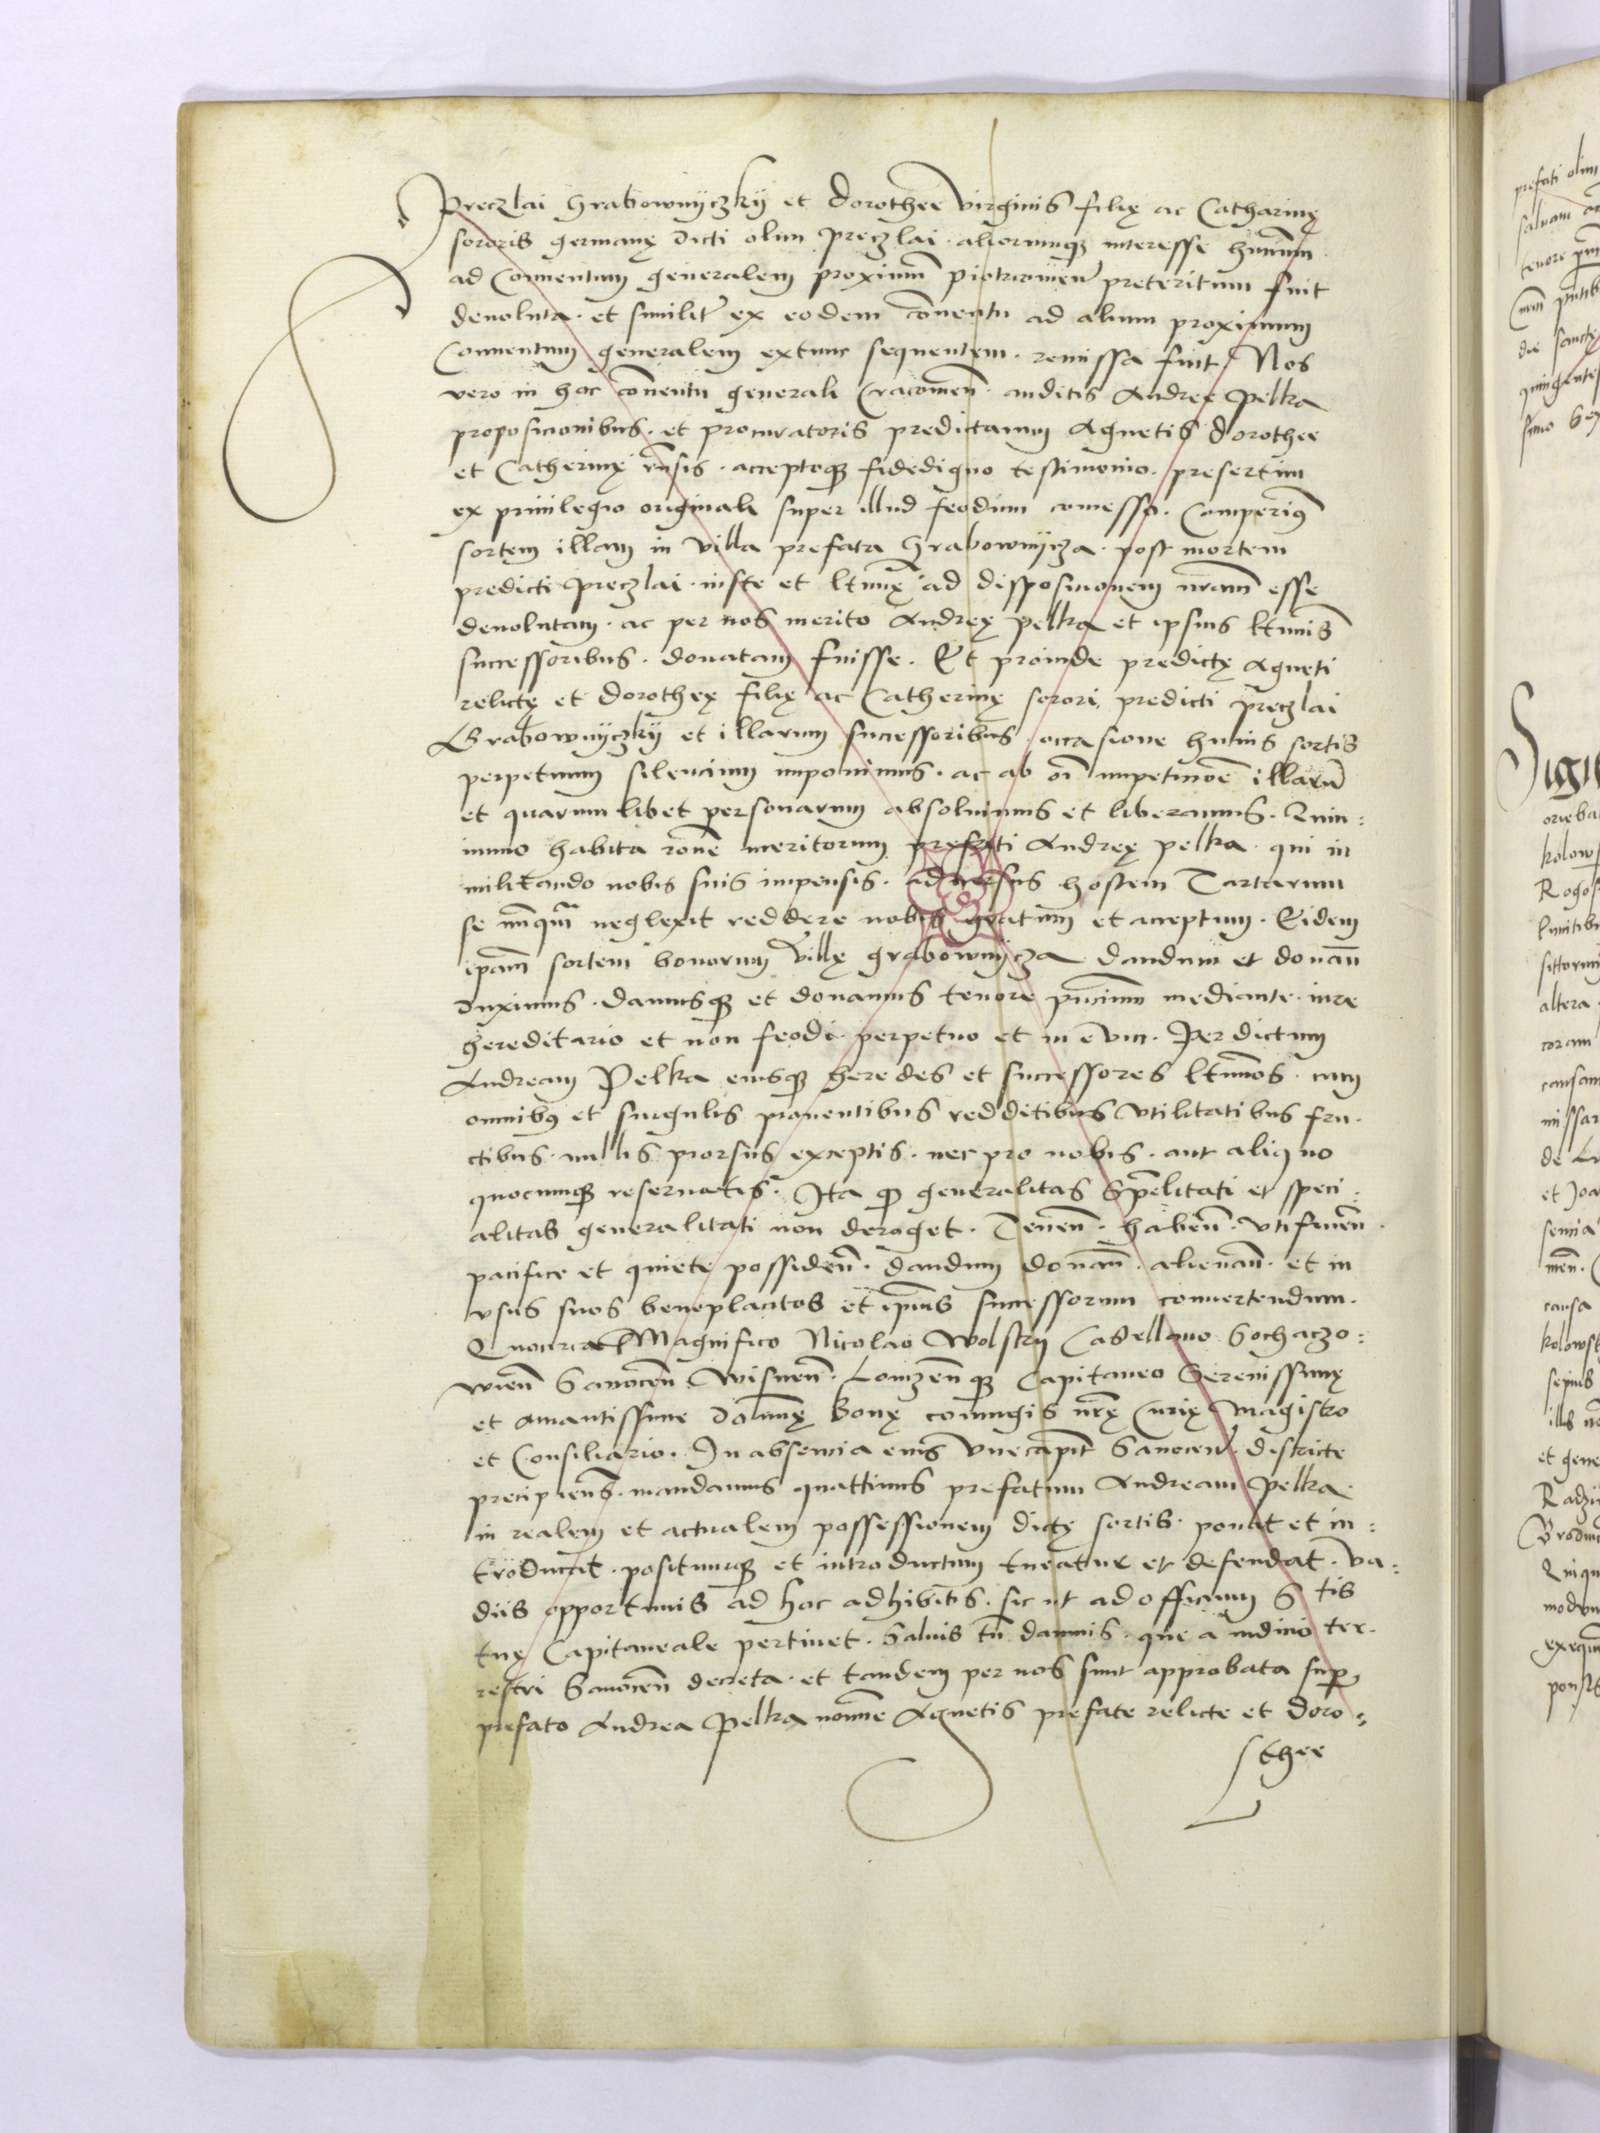 Preczlai Grabownyczky et dorothee virginis filię ac Catharinę
sororis germanę dicti olim preczlai. aliorumqȝ interesse hnīum
ad Conuentum generalem proximū piotrcouieñ preteritum fuit
deuoluta. et similiť ex eodem cōuentu ad alium proximum
Conuentum generalem extunc sequentem. remissa fuit Nos
vero in hoc cōuentu generali Cracouieñ. auditis Andree Pelka
proposicionibus. et procuratoris predictarum Agnetis dorothee
et Catherinę rñsis. acceptoqȝ fidedigno testimonio. presertim
ex priuilegio originali super illud feodum concesso. Comperimꝰ
sortem illam in villa prefata Grabownycza. post mortem
predicti preczlai. iuste et ltimę ad disposicionem nrām esse
deuolutam. ac per nos merito Andreę pelka et ipsius ltimis
successoribus. donatam fuisse. Et proinde predictę Agneti
relictę et dorotheę filię ac Catherinę sorori, predicti preczlai
Grabownyczky et illarum successoribus. occasione huius sortis
perpetuum silencium imponimus. ac ab oī impeticiōe illarū
et quarumlibet personarum absoluimus et liberamus. Quin:
immo habita rōne meritorum prefati Andreę pelka. qui in
militando nobis suis impensis. aduersus hostem Tartarum
se nunqm̄ neglexit reddere nobis gratum et acceptum. Eidem
ipam̄ sortem bonorum villę grabownycza dandum et donañ
duximus. damusqȝ et donamus tenore pn̄cium mediante. iure
hereditario et non feodi. perpetuo et in ęuum. Per dictum
Andream Pelka eiusqȝ heredes et successores ltimos. cum
omnibꝰ et singulis prouentibus redditibus vtilitatibus fru.
ctibus. nullis prorsus exceptis. nec pro nobis. aut aliquo
quocumqȝ reseruatis. Ita qȝ generalitas Spēlitati et speci:
alitas generalitati non deroget. Teneñ. habeñ. vtifrueñ.
pacifice et quiete possideñ. dandum donañ. alienañ. et in
vsus suos beneplacitos et ipīus successorum conuertendum.
Quocirca tibi Magnifico Nicolao Wolsky Castellano Sochaczo:
wieñ Sanoceñ. Wisneñ. Lomzeñqȝ Capitaneo Serenissimę
et amantissime dominę Bonę coniugis nrę Curię Magistro
et Consiliario. In absencia eius Vicecapit Sanoceñ. districte
precipieñs. mandamus quattinus prefatum Andream pelka
in realem et actualem possessionem dictę sortis. ponat et in:
troducat. positumqȝ et introductum tueatur et defendat. va:
diis opportunis ad hoc adhibitis. sic ut ad officium S tis
tuę Capitaneale pertinet. Saluis tñ damnis. que a iudicio ter.
restri Sanoceñ decreta. et tandem per nos sunt approbata sup
prefato Andrea Pelka noīne Agnetis prefate relicte et doro:
thee